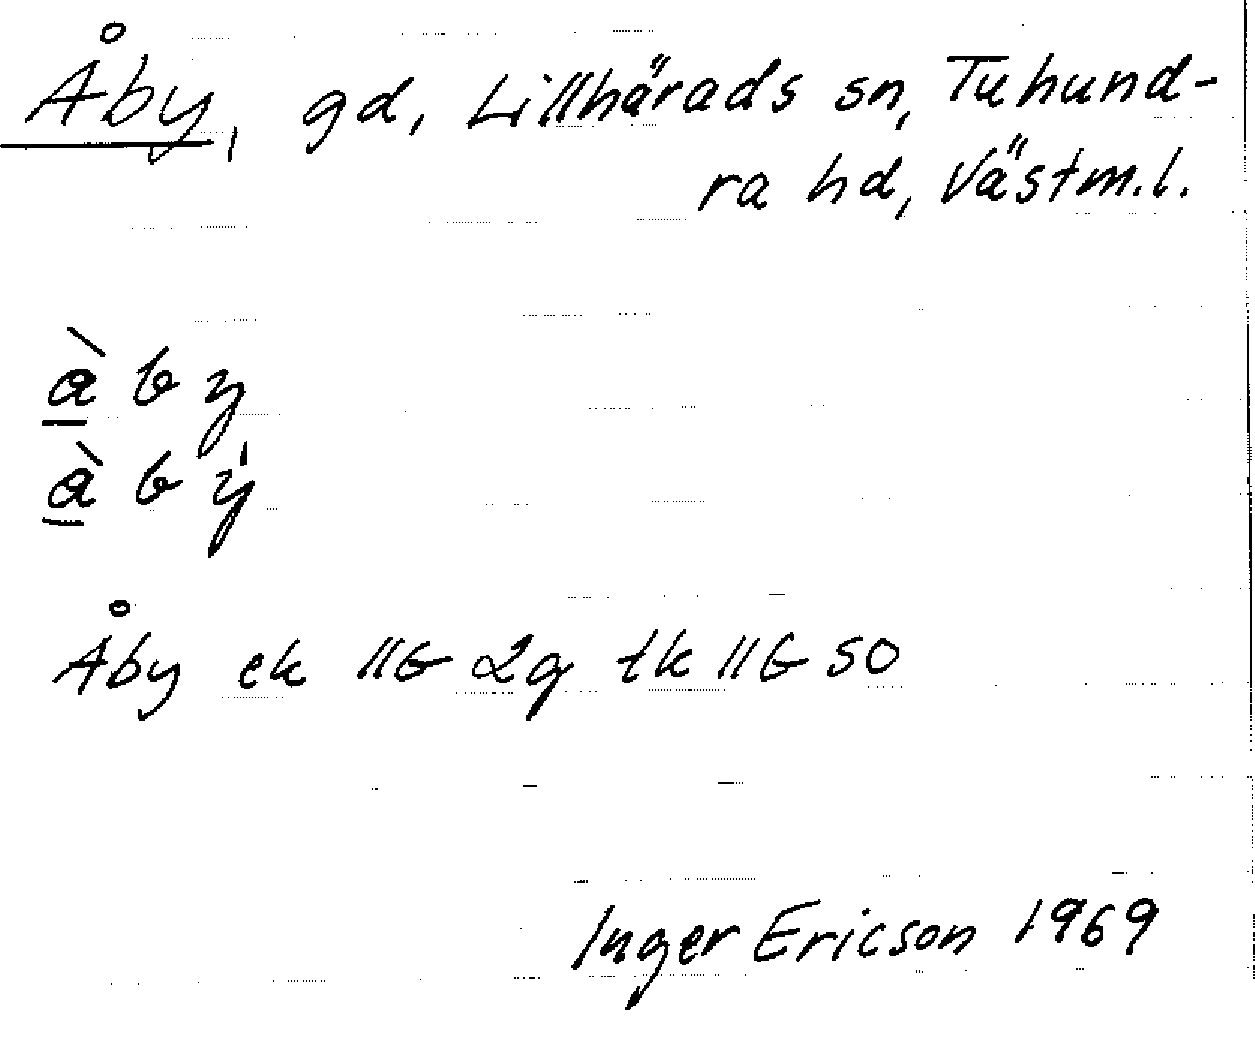 Åby, gd, Lillhärads sn, Tuhund-
ra hd, Västm.l.
à b y
à b ý
Åby ek 11G 2g tk 11G SO
Inger Ericson 1969